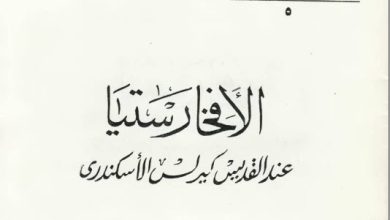 ٥
الأفخارستيا
عند القديس كيرلس الأسكندرى